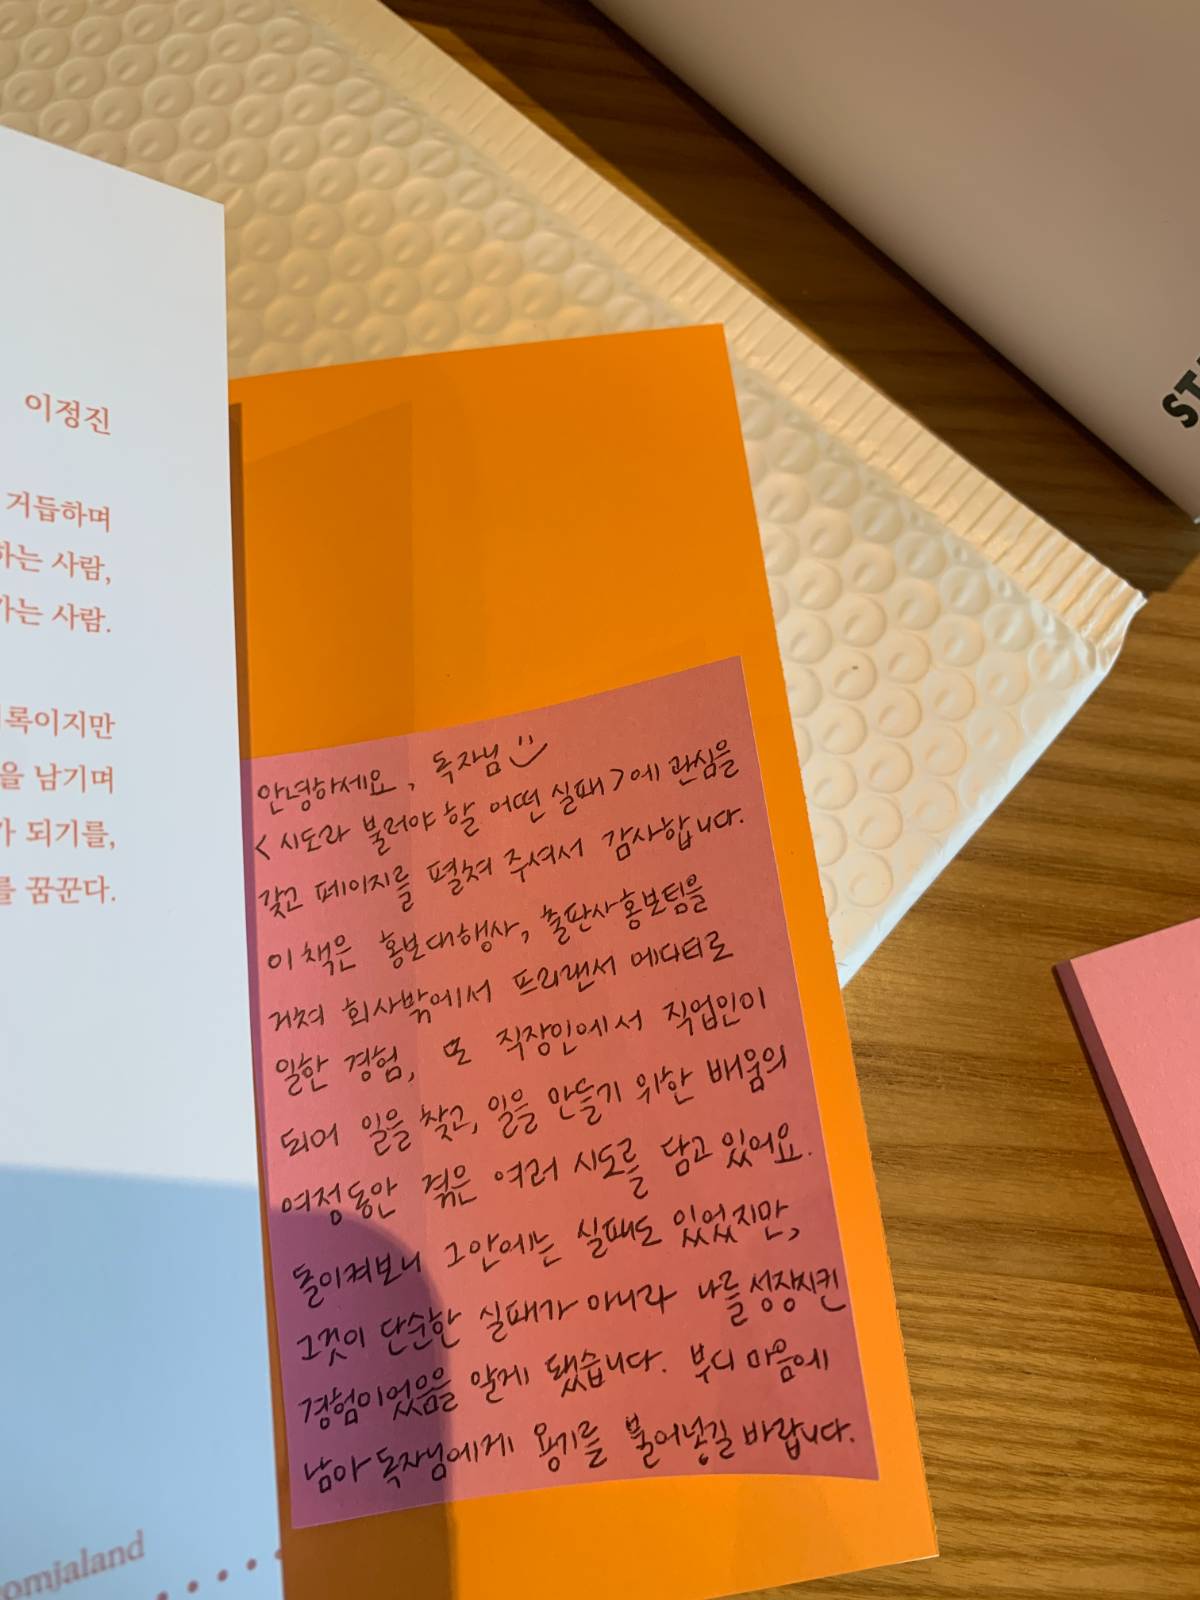 이정진
거듭하며
하는 사람,
가는 사람.
록이지만
을 남기며
가 되기를,
를 꿈꾼다.
omjaland
ST
안녕하세요, 독자님
<시도라 불러야 할 어떤 실패>에 관심을
갖고 페이지를 펼쳐 주셔서 감사합니다.
이 책은 홍보대행사, 출판사홍보팀을
거쳐 회사밖에서 프리랜서 에디터로
일한 경험, 또 직장인에서 직업인이
되어 일을 찾고, 일을 만들기 위한 배움의
여정동안 겪은 여러 시도를 담고 있어요.
돌이켜보니 그안에는 실패도 있었지만,
그것이 단순한 실패가 아니라 나를 성장시킨
경험이었음을 알게 됐습니다. 부디 마음에
남아 독자님에게 용기를 불어넣길 바랍니다.